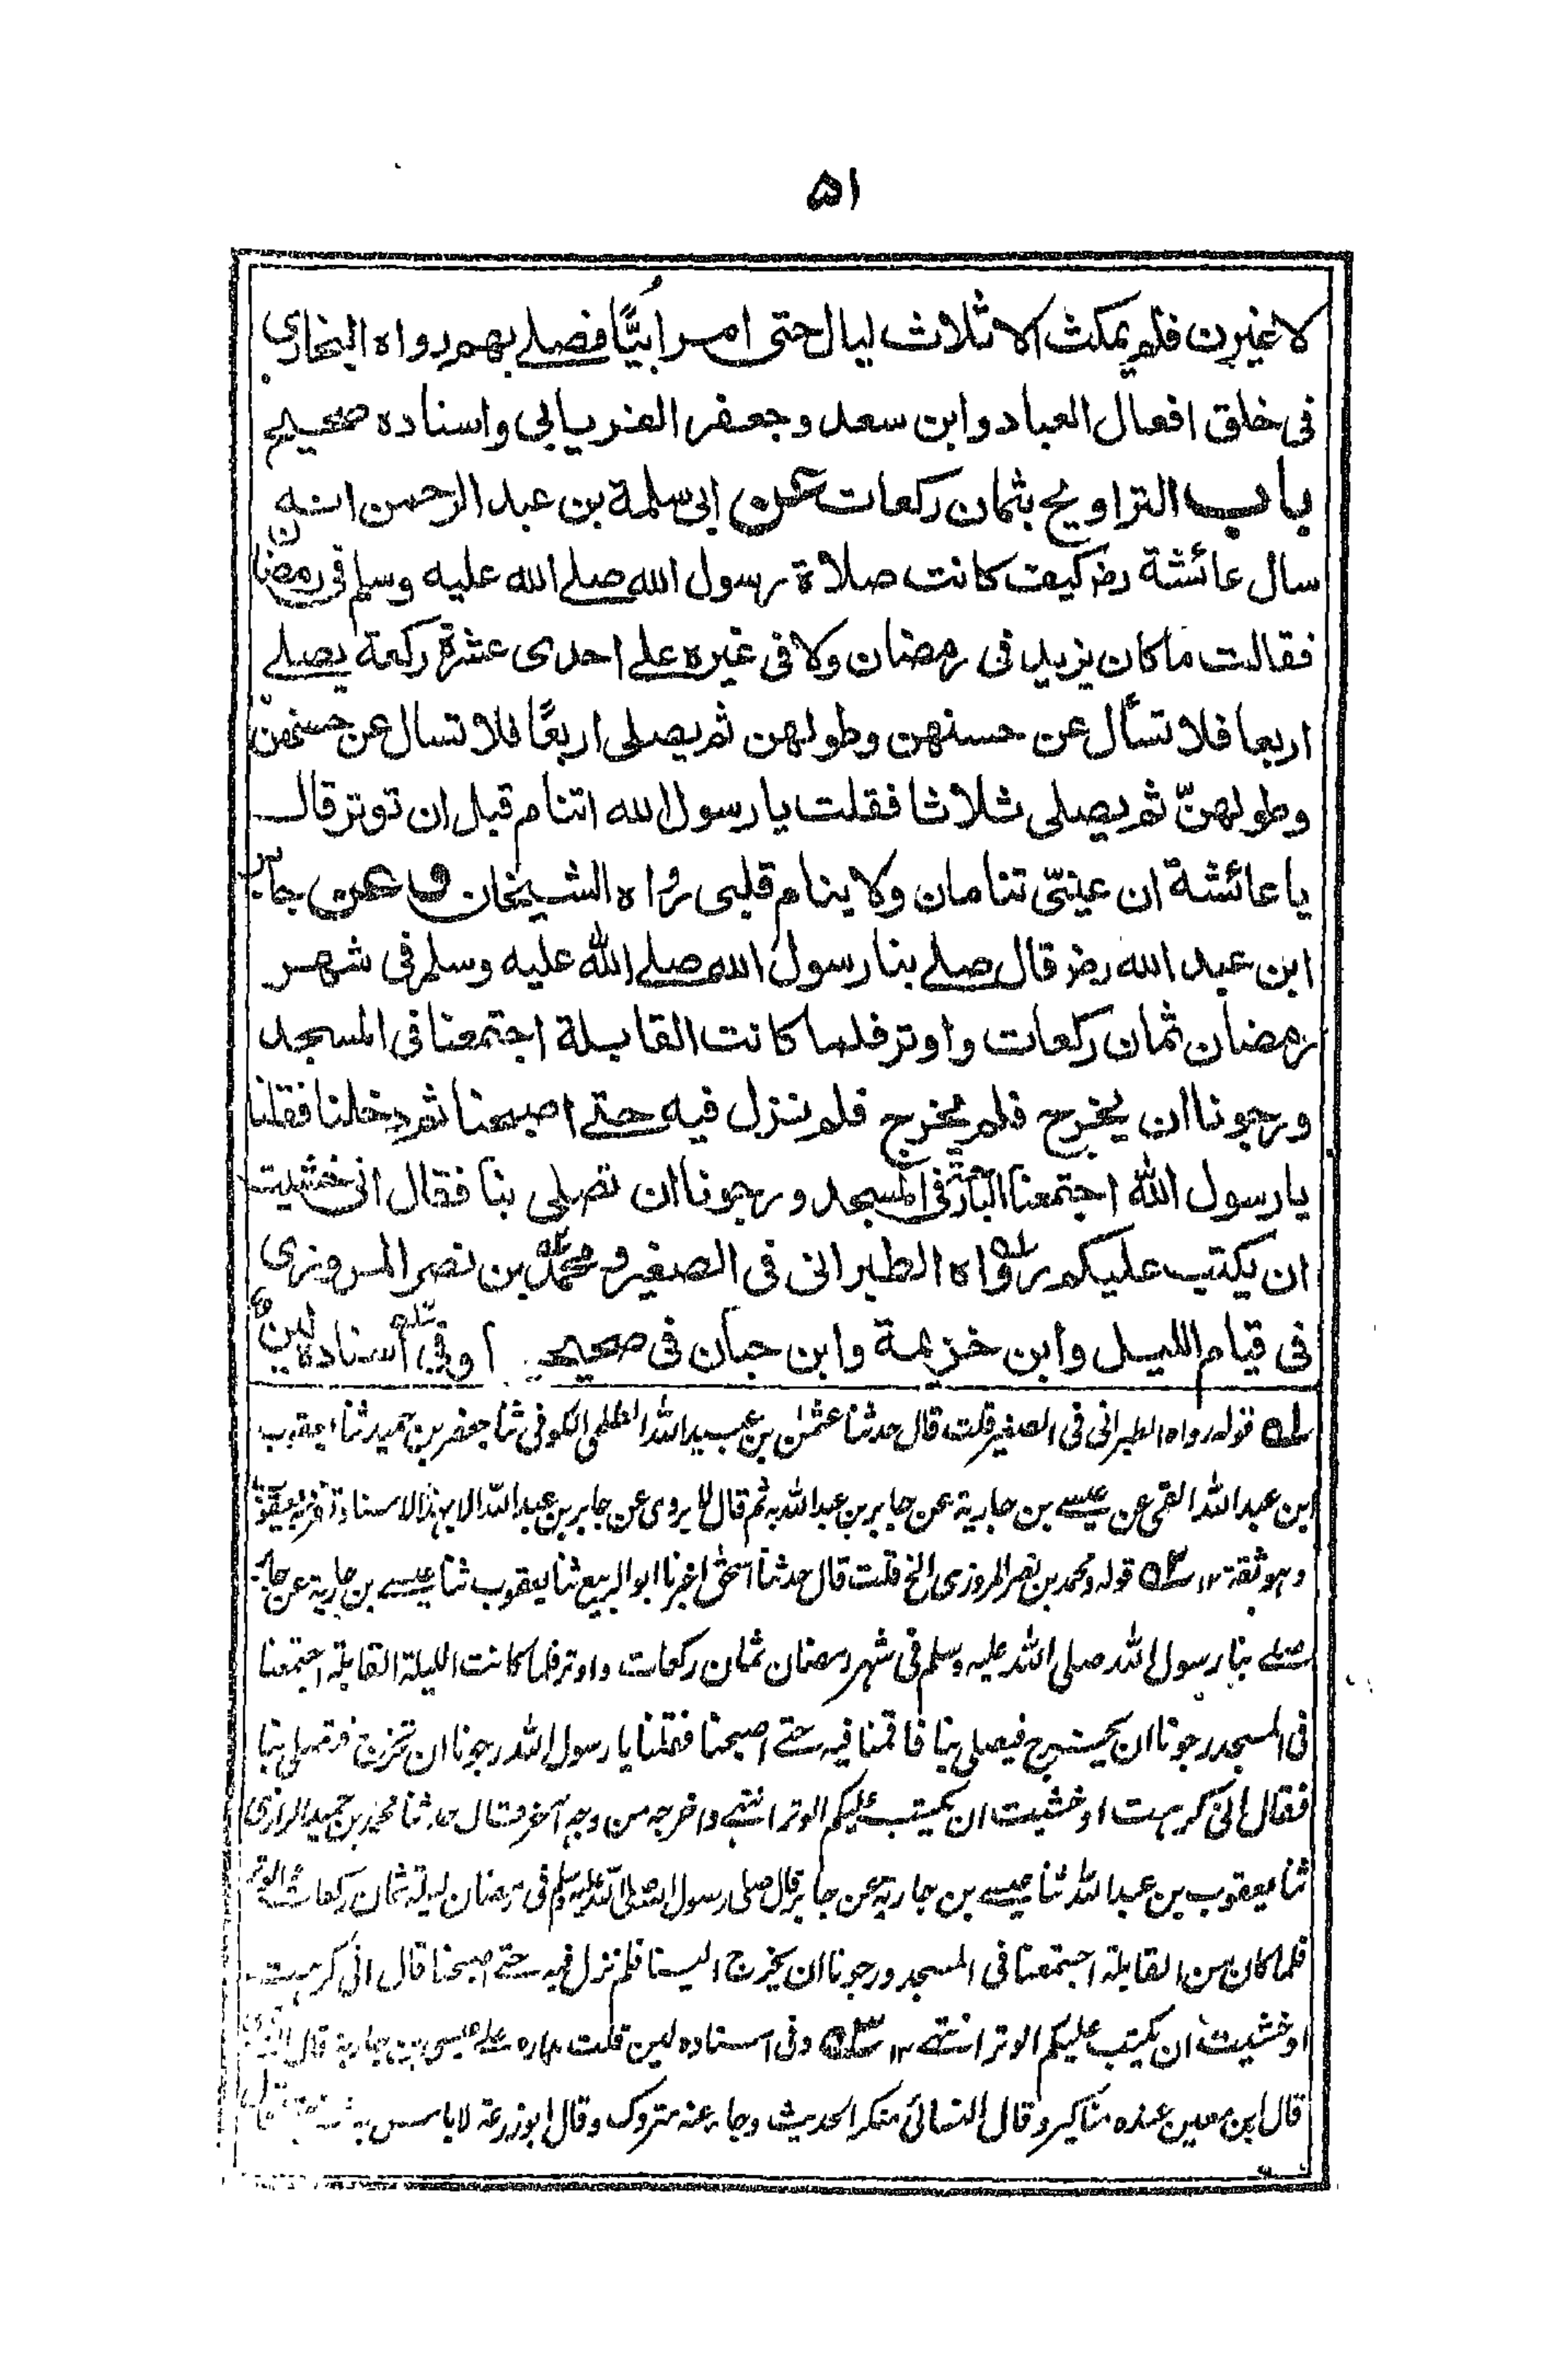 ۵۱
لا غيرن فلم يمكث الا ثلاث ليال حتى امر ابيًّا فصلے بهم رواه البخارى
فى خلق افعال العباد وابن سعد وجعفر الفريابى واسناده صحيح
باب التراويح بثمان ركعات عن ابى سلمة بن عبد الرحمن انه
سال عائشة رضـ كيف كانت صلاة رسول الله صلے الله عليه وسلم فى رمضان
فقالت ما كان يزيد فى رمضان ولا فى غيره علے احدى عشرة ركعة يصلے
اربعا فلا تسأل عن حسنهن وطولهن ثم يصلى اربعًا فلا تسال عن حسنهنّ
وطولهنّ ثم يصلى ثلاثا فقلت يا رسول الله اتنام قبل ان توتر قال
يا عائشة ان عينىّ تنامان ولا ينام قلبى رواه الشيخان وعن جابر
ابن عبد الله رضـ قال صلے بنا رسول الله صلے الله عليه وسلم فى شهر
رمضان ثمان ركعات واوتر فلما كانت القابلة اجتمعنا فى المسجد
ورجونا ان يخرج فلم يخرج فلم نزل فيه حتے اصبحنا ثم دخلنا فقلنا
يا رسول الله اجتمعنا البارحة فى المسجد ورجونا ان تصلى بنا فقال انى خشيت
ان يكتب عليكم رواه الطبرانى فى الصغير ومحمد بن نصر المروزى
فى قيام الليل وابن خزيمة وابن حبان فى صحيحـ وفى اسناده لين
لـه قوله رواه الطبرانى فى الصغير قلت قال حدثنا عثمٰن بن عبيد الله الطلحى الكوفى ثنا جعفر بن حميد ثنا يعقوب
ابن عبد الله القمى عن عيسے بن جارية عن جابر بن عبد الله به ثم قال لا يروى عن جابر بن عبد الله الا بهذا الاسناد تفرد به يعقوب
وهو ثقة ۱۲ ٢ـه قوله ومحمد بن نصر المروزى الخ قلت قال حدثنا اسحٰق اخبرنا ابو الربيع ثنا يعقوب ثنا عيسے بن جارية عن جابر
صلے بنا رسول الله صلى الله عليه وسلم فى شهر رمضان ثمان ركعات واوتر فلما كانت الليلة القابلة اجتمعنا
فى المسجد رجونا ان يخرج فيصلى بنا فاقمنا فيه حتے اصبحنا فقلنا يا رسول الله رجونا ان تخرج فتصلى بنا
فقال انى كرهت او خشيت ان يكتب عليكم الوتر انتهے واخرجه من وجه آخر فقال حدثنا محمد بن حميد الرازى
ثنا يعقوب بن عبد الله ثنا عيسے بن جارية عن جابر قال صلى رسول الله صلى الله عليه وسلم فى رمضان ليلة ثمان ركعات والوتر
فلما كان من القابلة اجتمعنا فى المسجد ورجونا ان يخرج الينا فلم نزل فيه حتے اصبحنا قال انى كرهت
او خشيت ان يكتب عليكم الوتر انتهے ۱۲ ٣ـه وفى اسناده لين قلت مداره علے عيسى بن جارية قال الذهبى
قال ابن معين عنده مناكير وقال النسائى منكر الحديث وجاء عنه متروك وقال ابو زرعة لا باس به